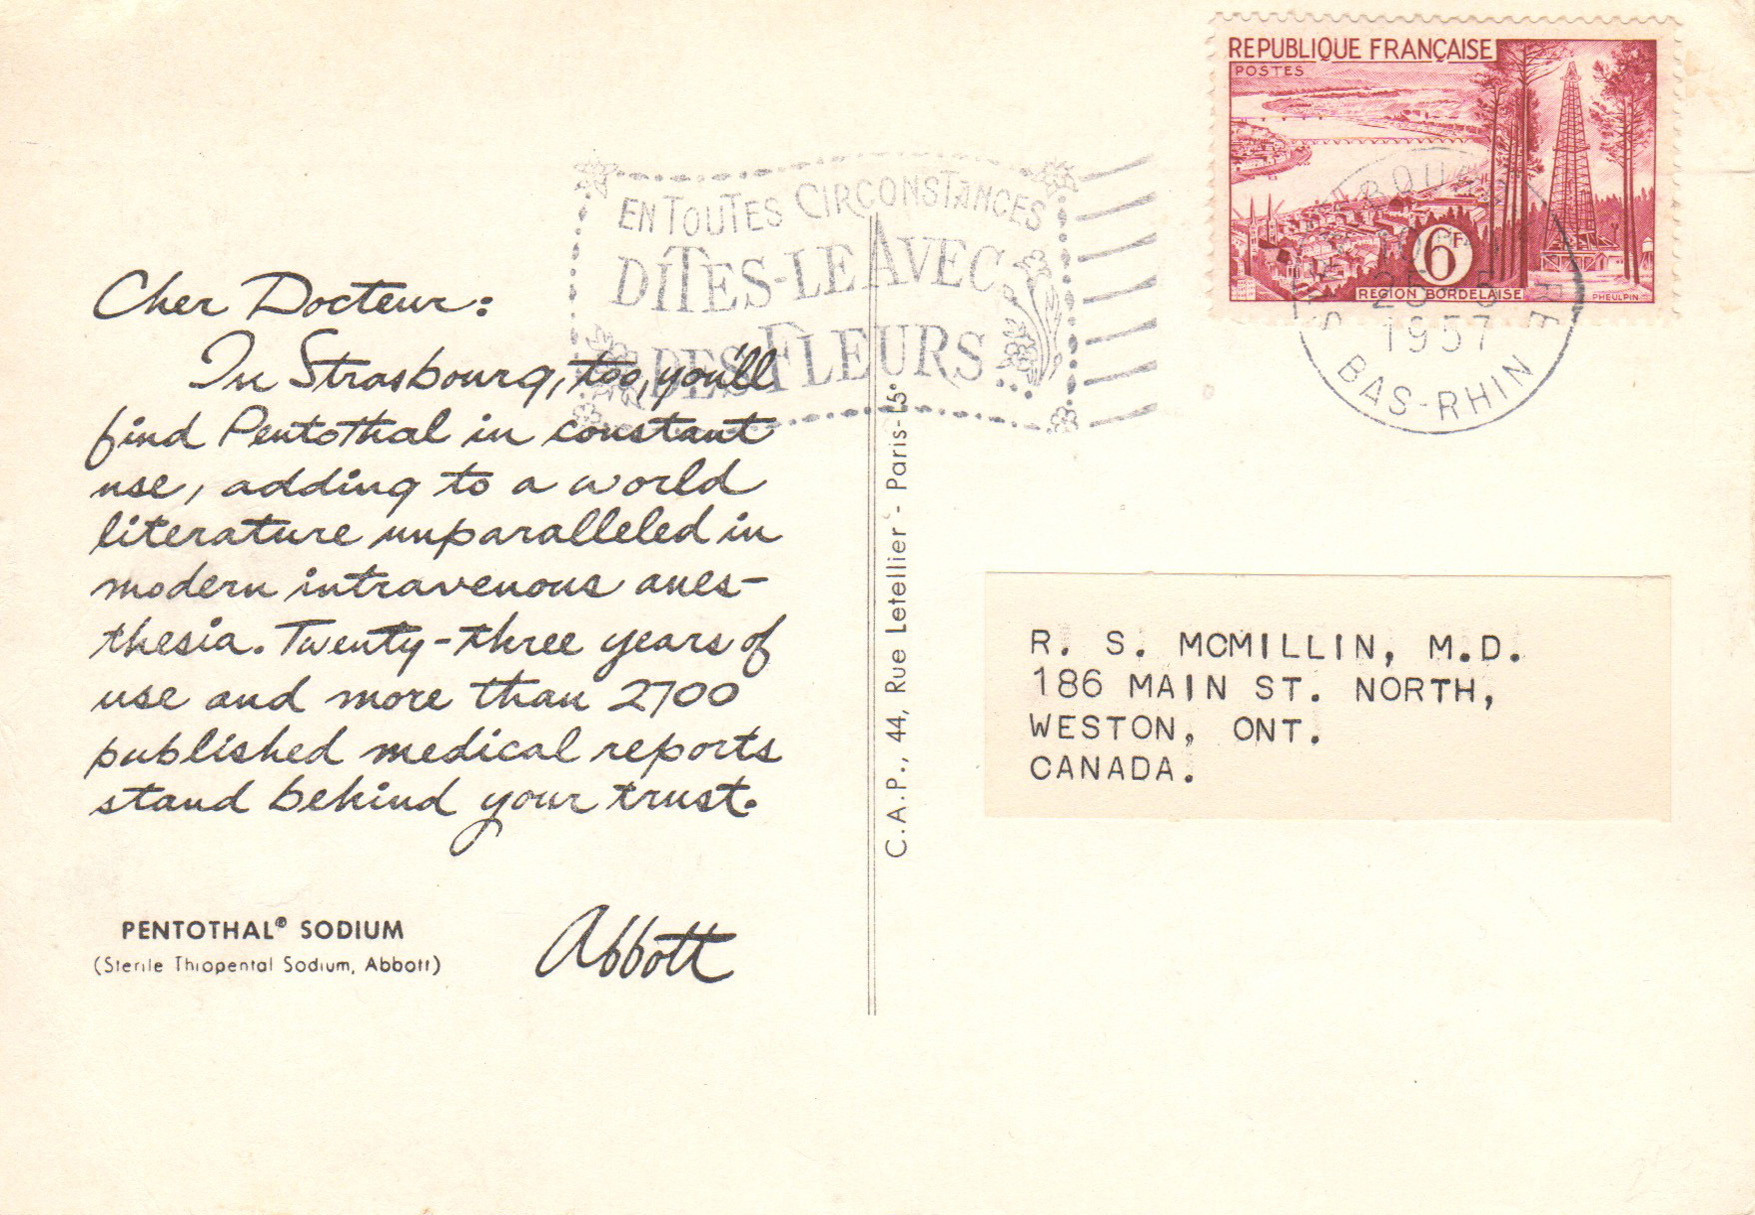 REPUBLIQUE FRANÇAISE
POSTES
6F
REGION BORDELAISE
PHEULPIN
EN TOUTES CIRCONSTANCES
DITES-LE AVEC
DES FLEURS
25
1957
BAS-RHIN
Cher Docteur:
In Strasbourg, too, you'll
find Pentothal in constant
use, adding to a world
literature unparalleled in
modern intravenous anes-
thesia. Twenty-three years of
use and more than 2700
published medical reports
stand behind your trust.
Abbott
PENTOTHAL® SODIUM
(Sterile Thiopental Sodium, Abbott)
C.A.P., 44, Rue Letellier - Paris-15°
R. S. MCMILLIN, M.D.
186 MAIN ST. NORTH,
WESTON, ONT.
CANADA.